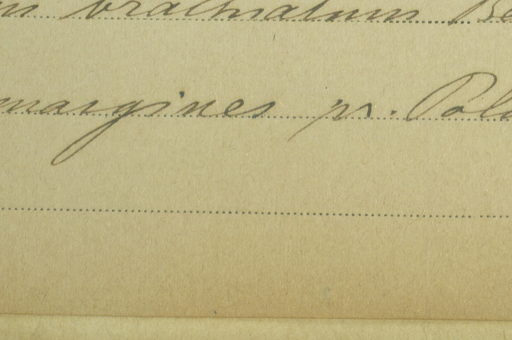 brachiatum Be
margines pr. Pol